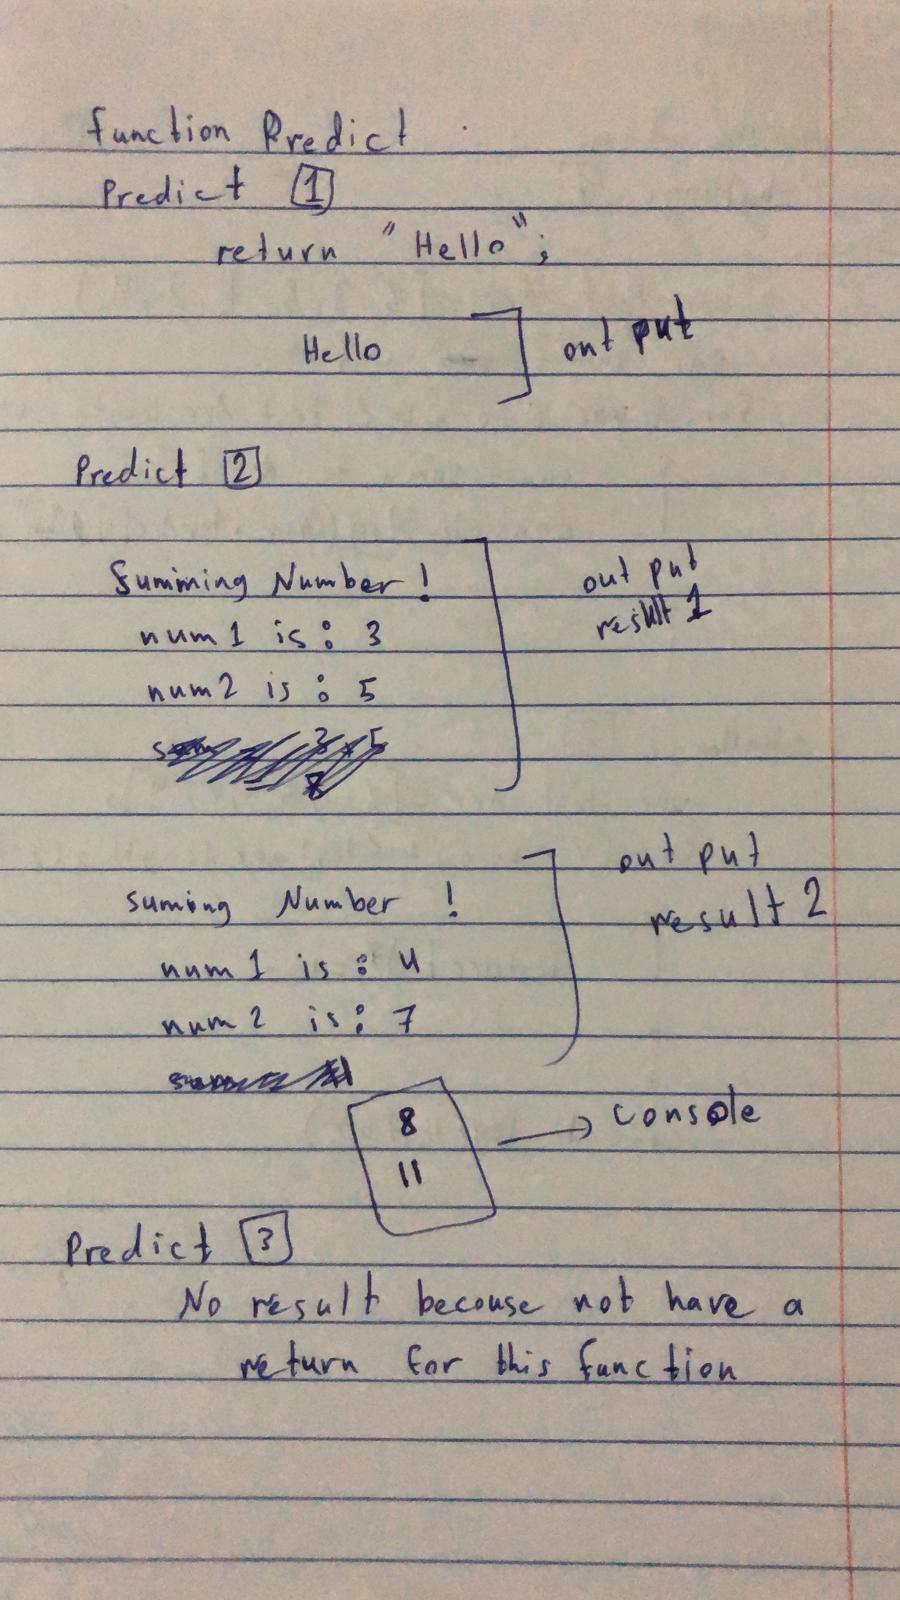 function Predict
Predict 1
return "Hello";
Hello
out put
Predict 2
Summing Number !
num1 is : 3
num2 is : 5
out put
result 1
suming Number !
num1 is : 4
num2 is : 7
out put
result 2
8
11
console
Predict 3
No result becouse not have a
return for this function